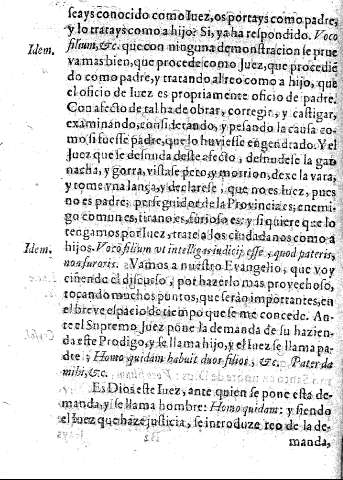 seays conocido como Iuez, os portays como padre,
y lo tratays como a hijo? Si, ya ha respondido. Voco
Idem. filium, &c. que con ninguna demonstracion se prue
va mas bien, que procede como Iuez, que procedié
do como padre, y tratando al reo como a hijo, que
el oficio de Iuez es propriamente oficio de padre.
Con afecto de tal ha de obrar, corregir, y castigar,
examinando, considerando, y pesando la causa co-
mo si fuesse padre, que lo huviesse engendrado. Y el
Iuez que se desnuda deste afecto, desnudese la gar
nacha, y gorra, vistase peto, y morrion, dexe la vara,
y tome vna lança, y declarese, que no es Iuez, pues
no es padre; perseguidor de la Provincia es; enemi-
go comun es, tirano es, furioso es: y si quiere que lo
tengamos por Iuez, trate a los ciudadanos como a
Idem. hijos. Voco filium vt intelligas iudicis esse, quod patris,
non furoris. Vamos a nuestro Evangelio, que voy
ciñendo el discurso, por hazerlo mas provechoso,
tocando muchos puntos, que serán importantes, en
el breve espacio de tiempo que se me concede. An-
te el Supremo Iuez pone la demanda de su hazien
da este Prodigo, y se llama hijo, y el Iuez se llama pa
dre; Homo quidam habuit duos filios, &c. Pater da
mihi, &c.
Es Dios este Iuez, ante quien se pone esta de-
manda, y se llama hombre: Homo quidam: y siendo
el Iuez que haze justicia, se introduze reo de la de-
manda,